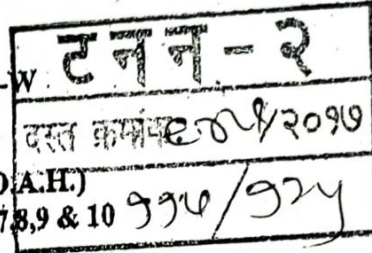 -W
टनन - २
दस्त क्रमांक /२०१७
D.A.H.)
7,8,9 & 10 ११७/१२५